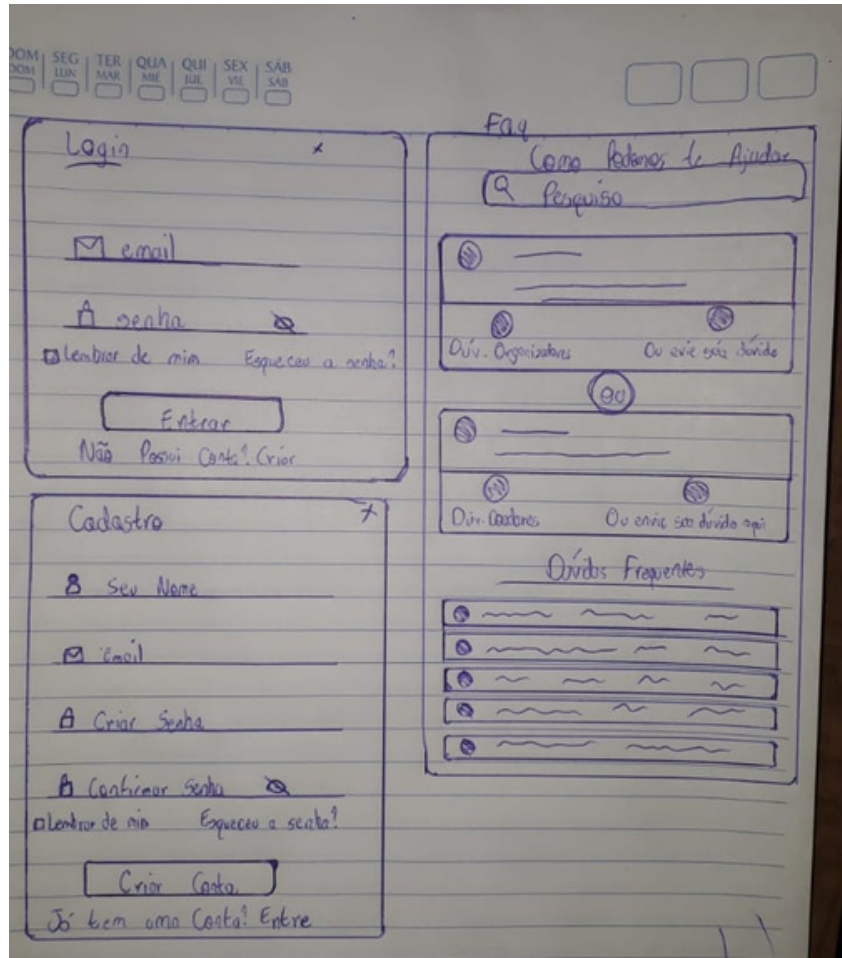 DOM SEG TER QUA QUI SEX SÁB
DOM LUN MAR MIÉ JUE VIE SAB
Login x
email
senha
Lembrar de mim Esqueceu a senha?
Entrar
Não Possui Conta? Criar
Cadastro x
Seu Nome
Email
Criar Senha
Confirmar Senha
Lembrar de mim Esqueceu a senha?
Criar Conta
Já tem uma Conta? Entre
Faq
Como Podemos te Ajudar
Pesquiso
Dúv. Organizadores Ou evie sua dúvida
Dúv. Ou envie sua dúvida aqui
Dúvidas Frequentes